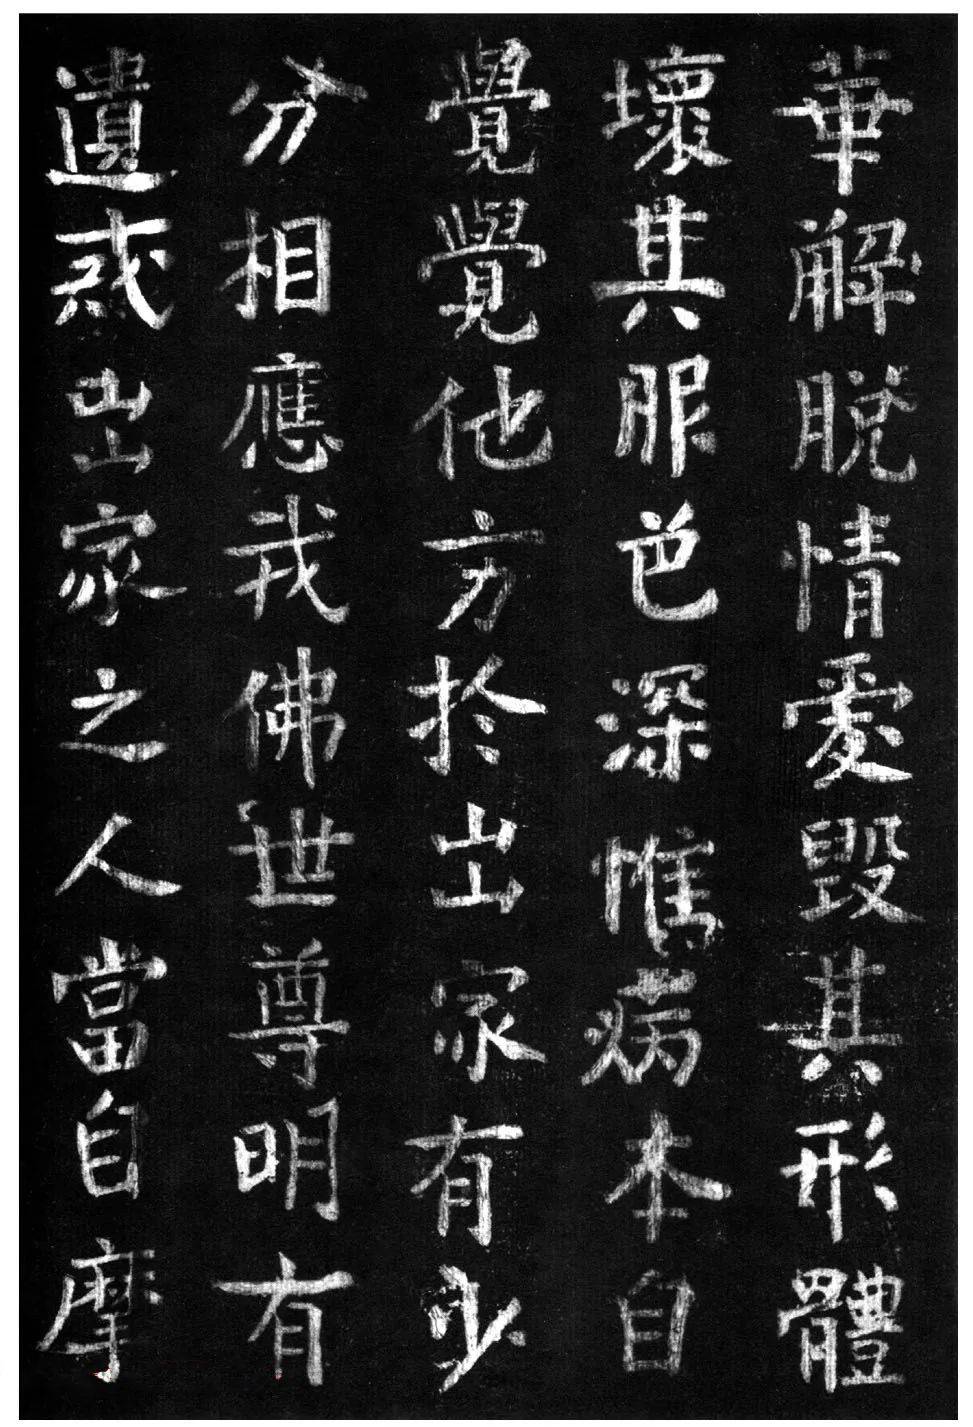 華解脫情愛毀其形體
壞其服色深惟病本自
覺覺他方於出家有少
分相應我佛世尊明有
遺戒出家之人當自摩